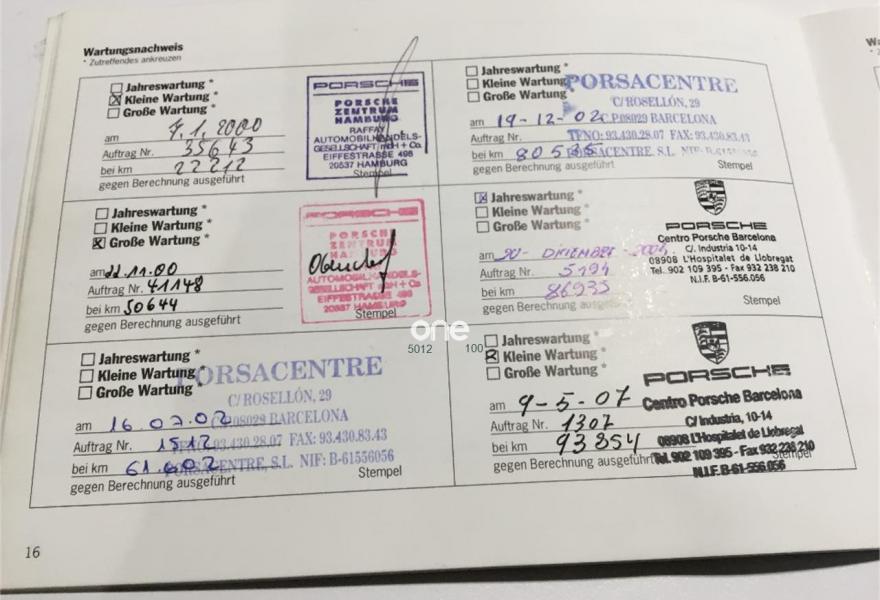 Wartungsnachweis
* Zutreffendes ankreuzen
Jahreswartung *
Kleine Wartung *
Große Wartung *
am 7.1.2000
Auftrag Nr. 35643
bei km 22212
gegen Berechnung ausgeführt
PORSCHE
PORSCHE
ZENTRUM
HAMBURG
RAFFAY
AUTOMOBILHANDELS-
GESELLSCHAFT mbH + Co.
EIFFESTRASSE 498
20537 HAMBURG
Stempel
Jahreswartung *
Kleine Wartung *
Große Wartung *
am 22.11.00
Auftrag Nr. 41148
bei km 50644
gegen Berechnung ausgeführt
PORSCHE
PORSCHE
ZENTRUM
HAMBURG
AUTOMOBILHANDELS-
GESELLSCHAFT mbH + Co.
EIFFESTRASSE 498
20537 HAMBURG
Stempel
Jahreswartung *
Kleine Wartung *
Große Wartung *
PORSACENTRE
C/ ROSELLÓN, 29
08029 BARCELONA
am 16.07.02
Auftrag Nr. 1512
93.430.28.07 FAX: 93.430.83.43
bei km
PORSACENTRE, S.L. NIF: B-61556056
gegen Berechnung ausgeführt
Stempel
Jahreswartung *
Kleine Wartung *
Große Wartung *
PORSACENTRE
C/ ROSELLÓN, 29
am 19-12-02 C.P.08029 BARCELONA
Auftrag Nr. TFNO: 93.430.28.07 FAX: 93.430.83.43
bei km PORSACENTRE, S.L.
gegen Berechnung ausgeführt
Stempel
Jahreswartung *
Kleine Wartung *
Große Wartung *
am
Auftrag Nr. 5194
bei km 86935
gegen Berechnung ausgeführt
PORSCHE
Centro Porsche Barcelona
C/. Industria 10-14
08908 L'Hospitalet de Llobregat
Tel. 902 109 395 - Fax 932 238 210
N.I.F. B-61-556.056
Stempel
one
5012 100
Jahreswartung *
Kleine Wartung *
Große Wartung *
am 9-5-07
Auftrag Nr. 1307
bei km 93854
gegen Berechnung ausgeführt
PORSCHE
Centro Porsche Barcelona
C/ Industria, 10-14
08908 L'Hospitalet de Llobregat
Tel. 902 109 395 - Fax 932 238 210
N.I.F. B-61-556.056
Stempel
16